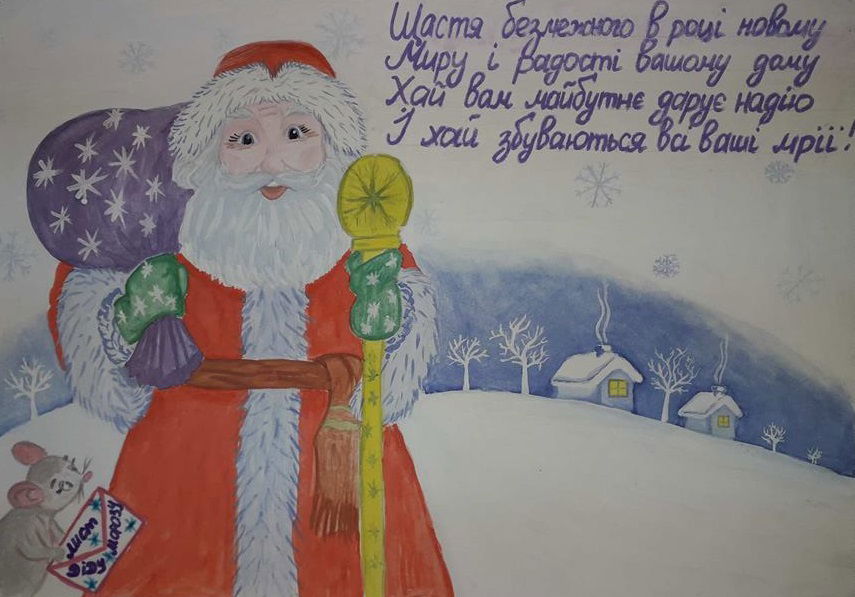 Щастя безмежного в році новому
Миру і радості вашому дому
Хай вам майбутнє дарує надію
І хай збуваються всі ваші мрії!
Лист
Діду
Морозу